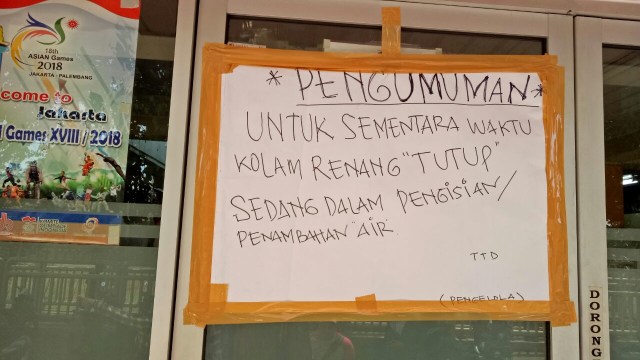 18th
ASIAN Games
2018
JAKARTA - PALEMBANG
come to
Jakarta
Games XVIII / 2018
* PENGUMUMAN *
UNTUK SEMENTARA WAKTU
KOLAM RENANG "TUTUP"
SEDANG DALAM PENGISIAN/
PENAMBAHAN AIR
TTD
(PENGELOLA)
DORONG